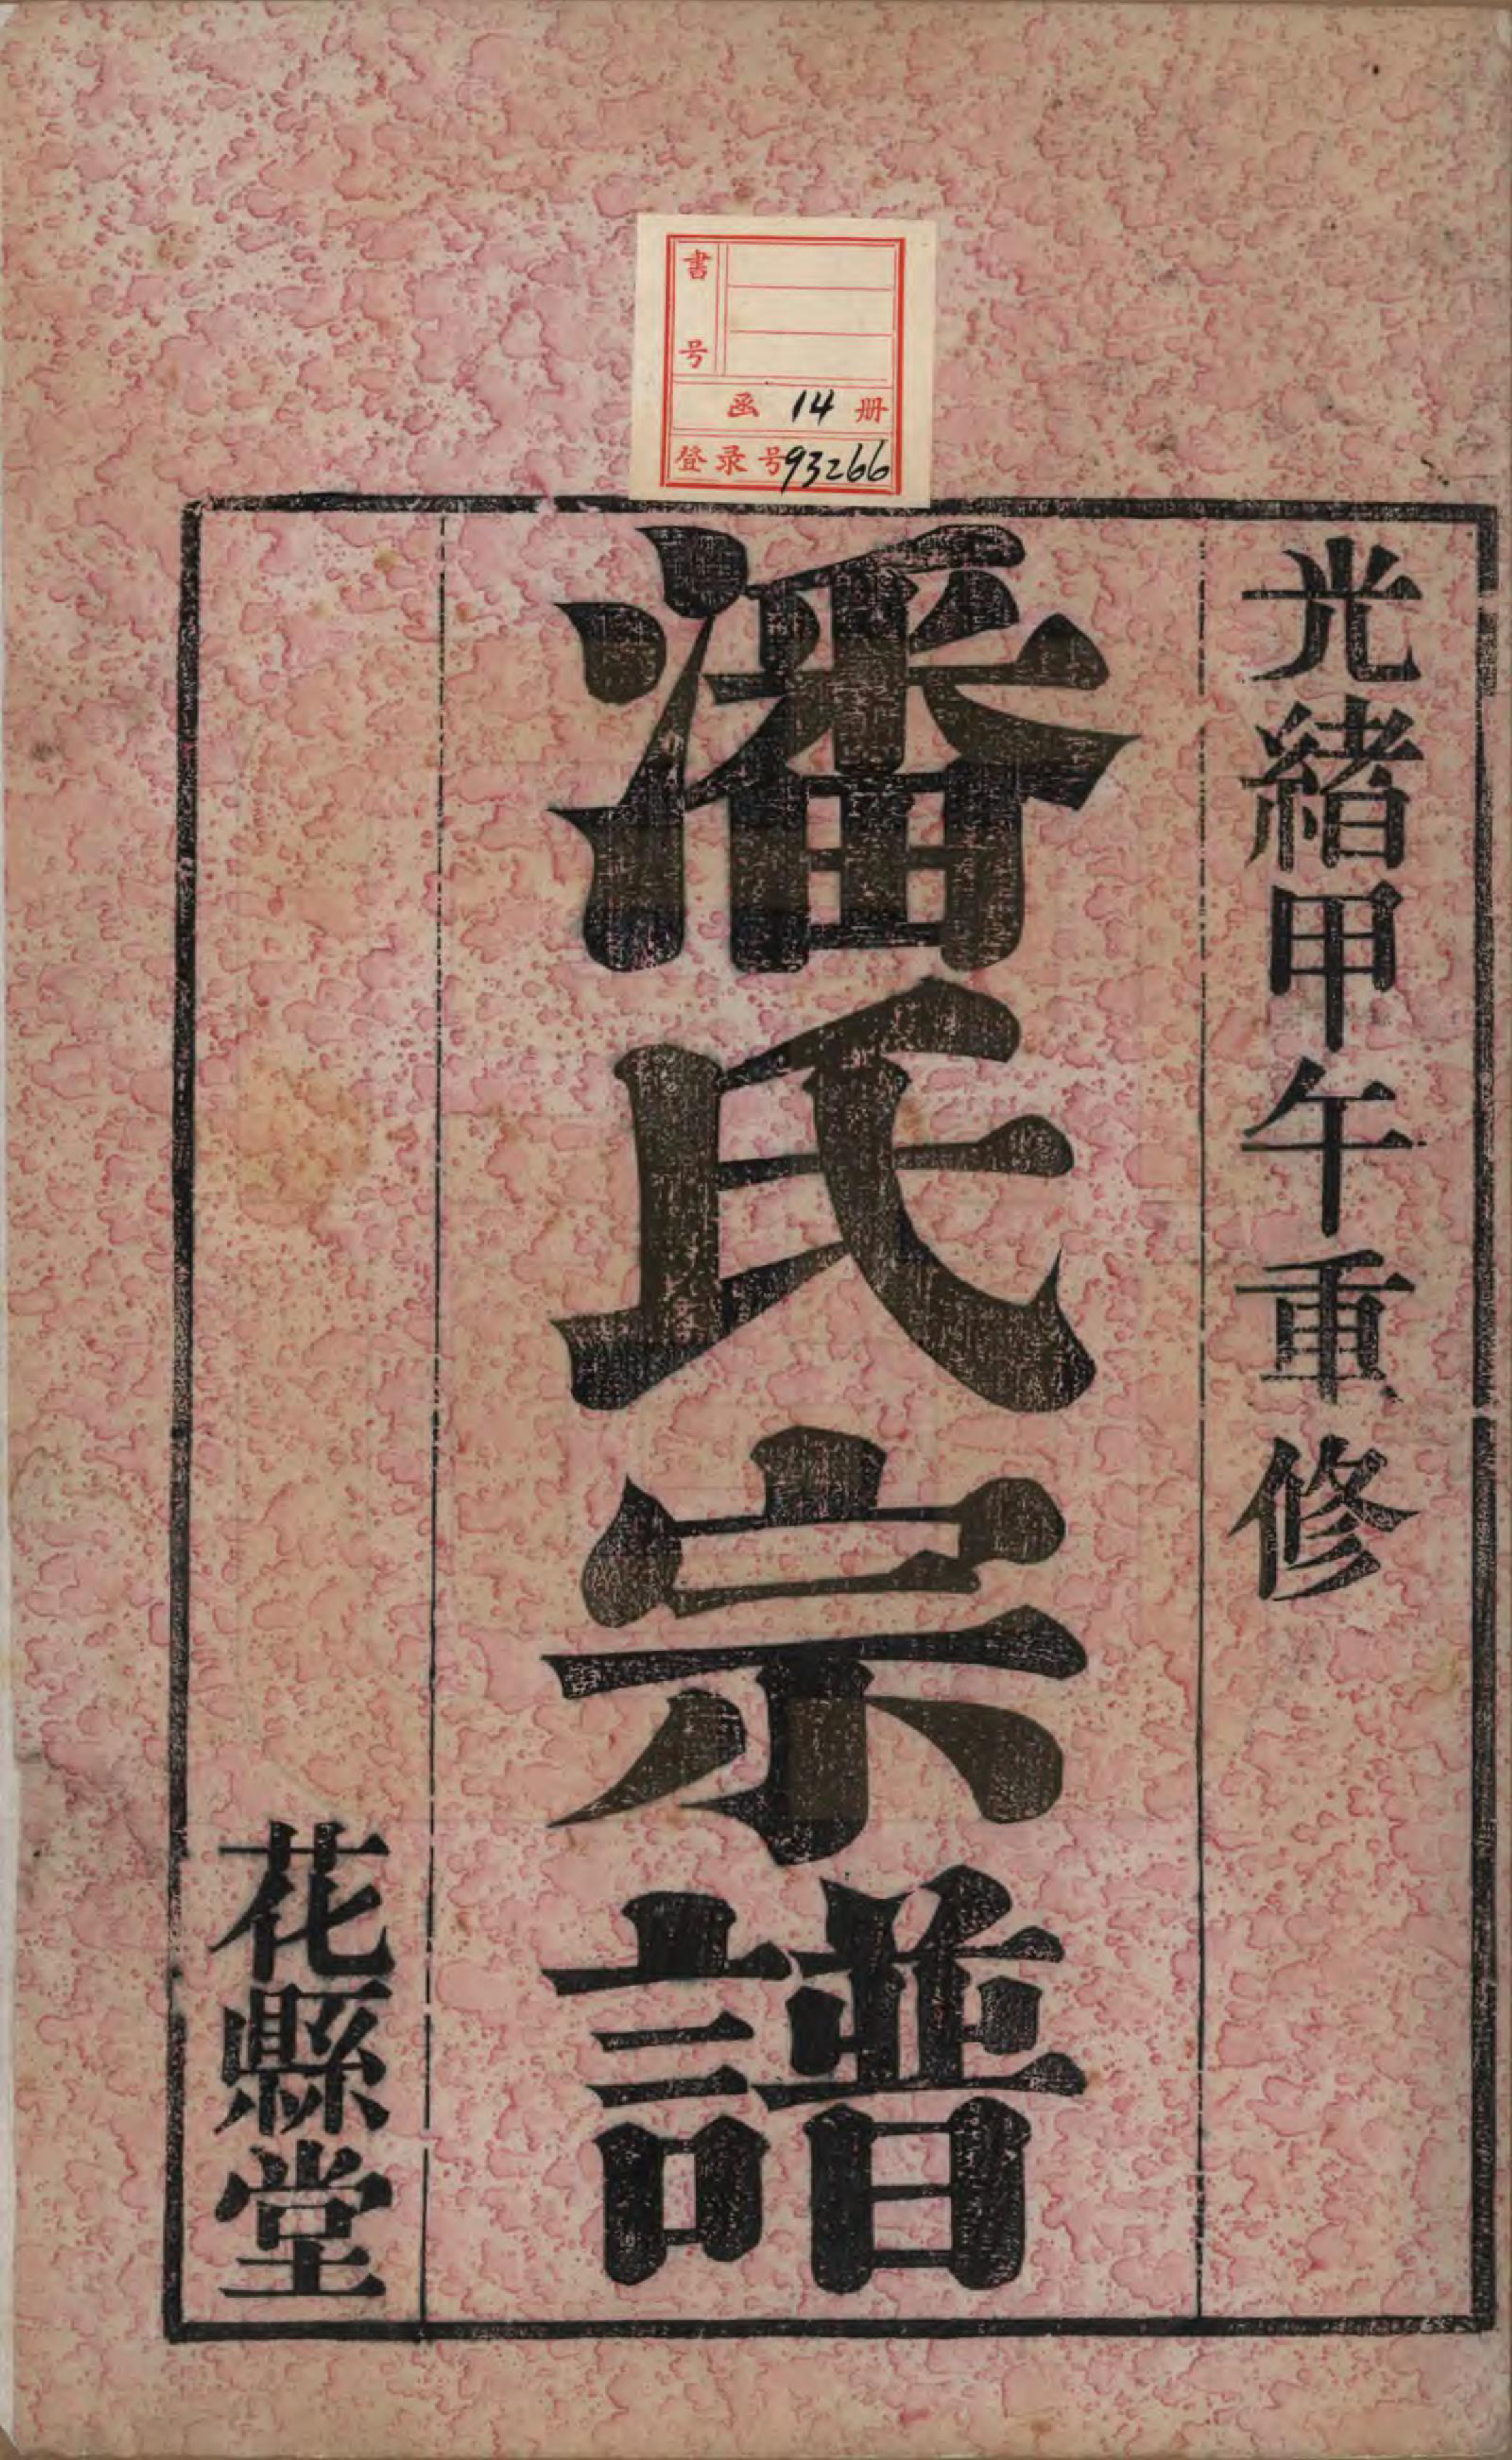 書号
函 14 册
登录号 93266
光緒甲午重修
潘氏宗譜
花縣堂